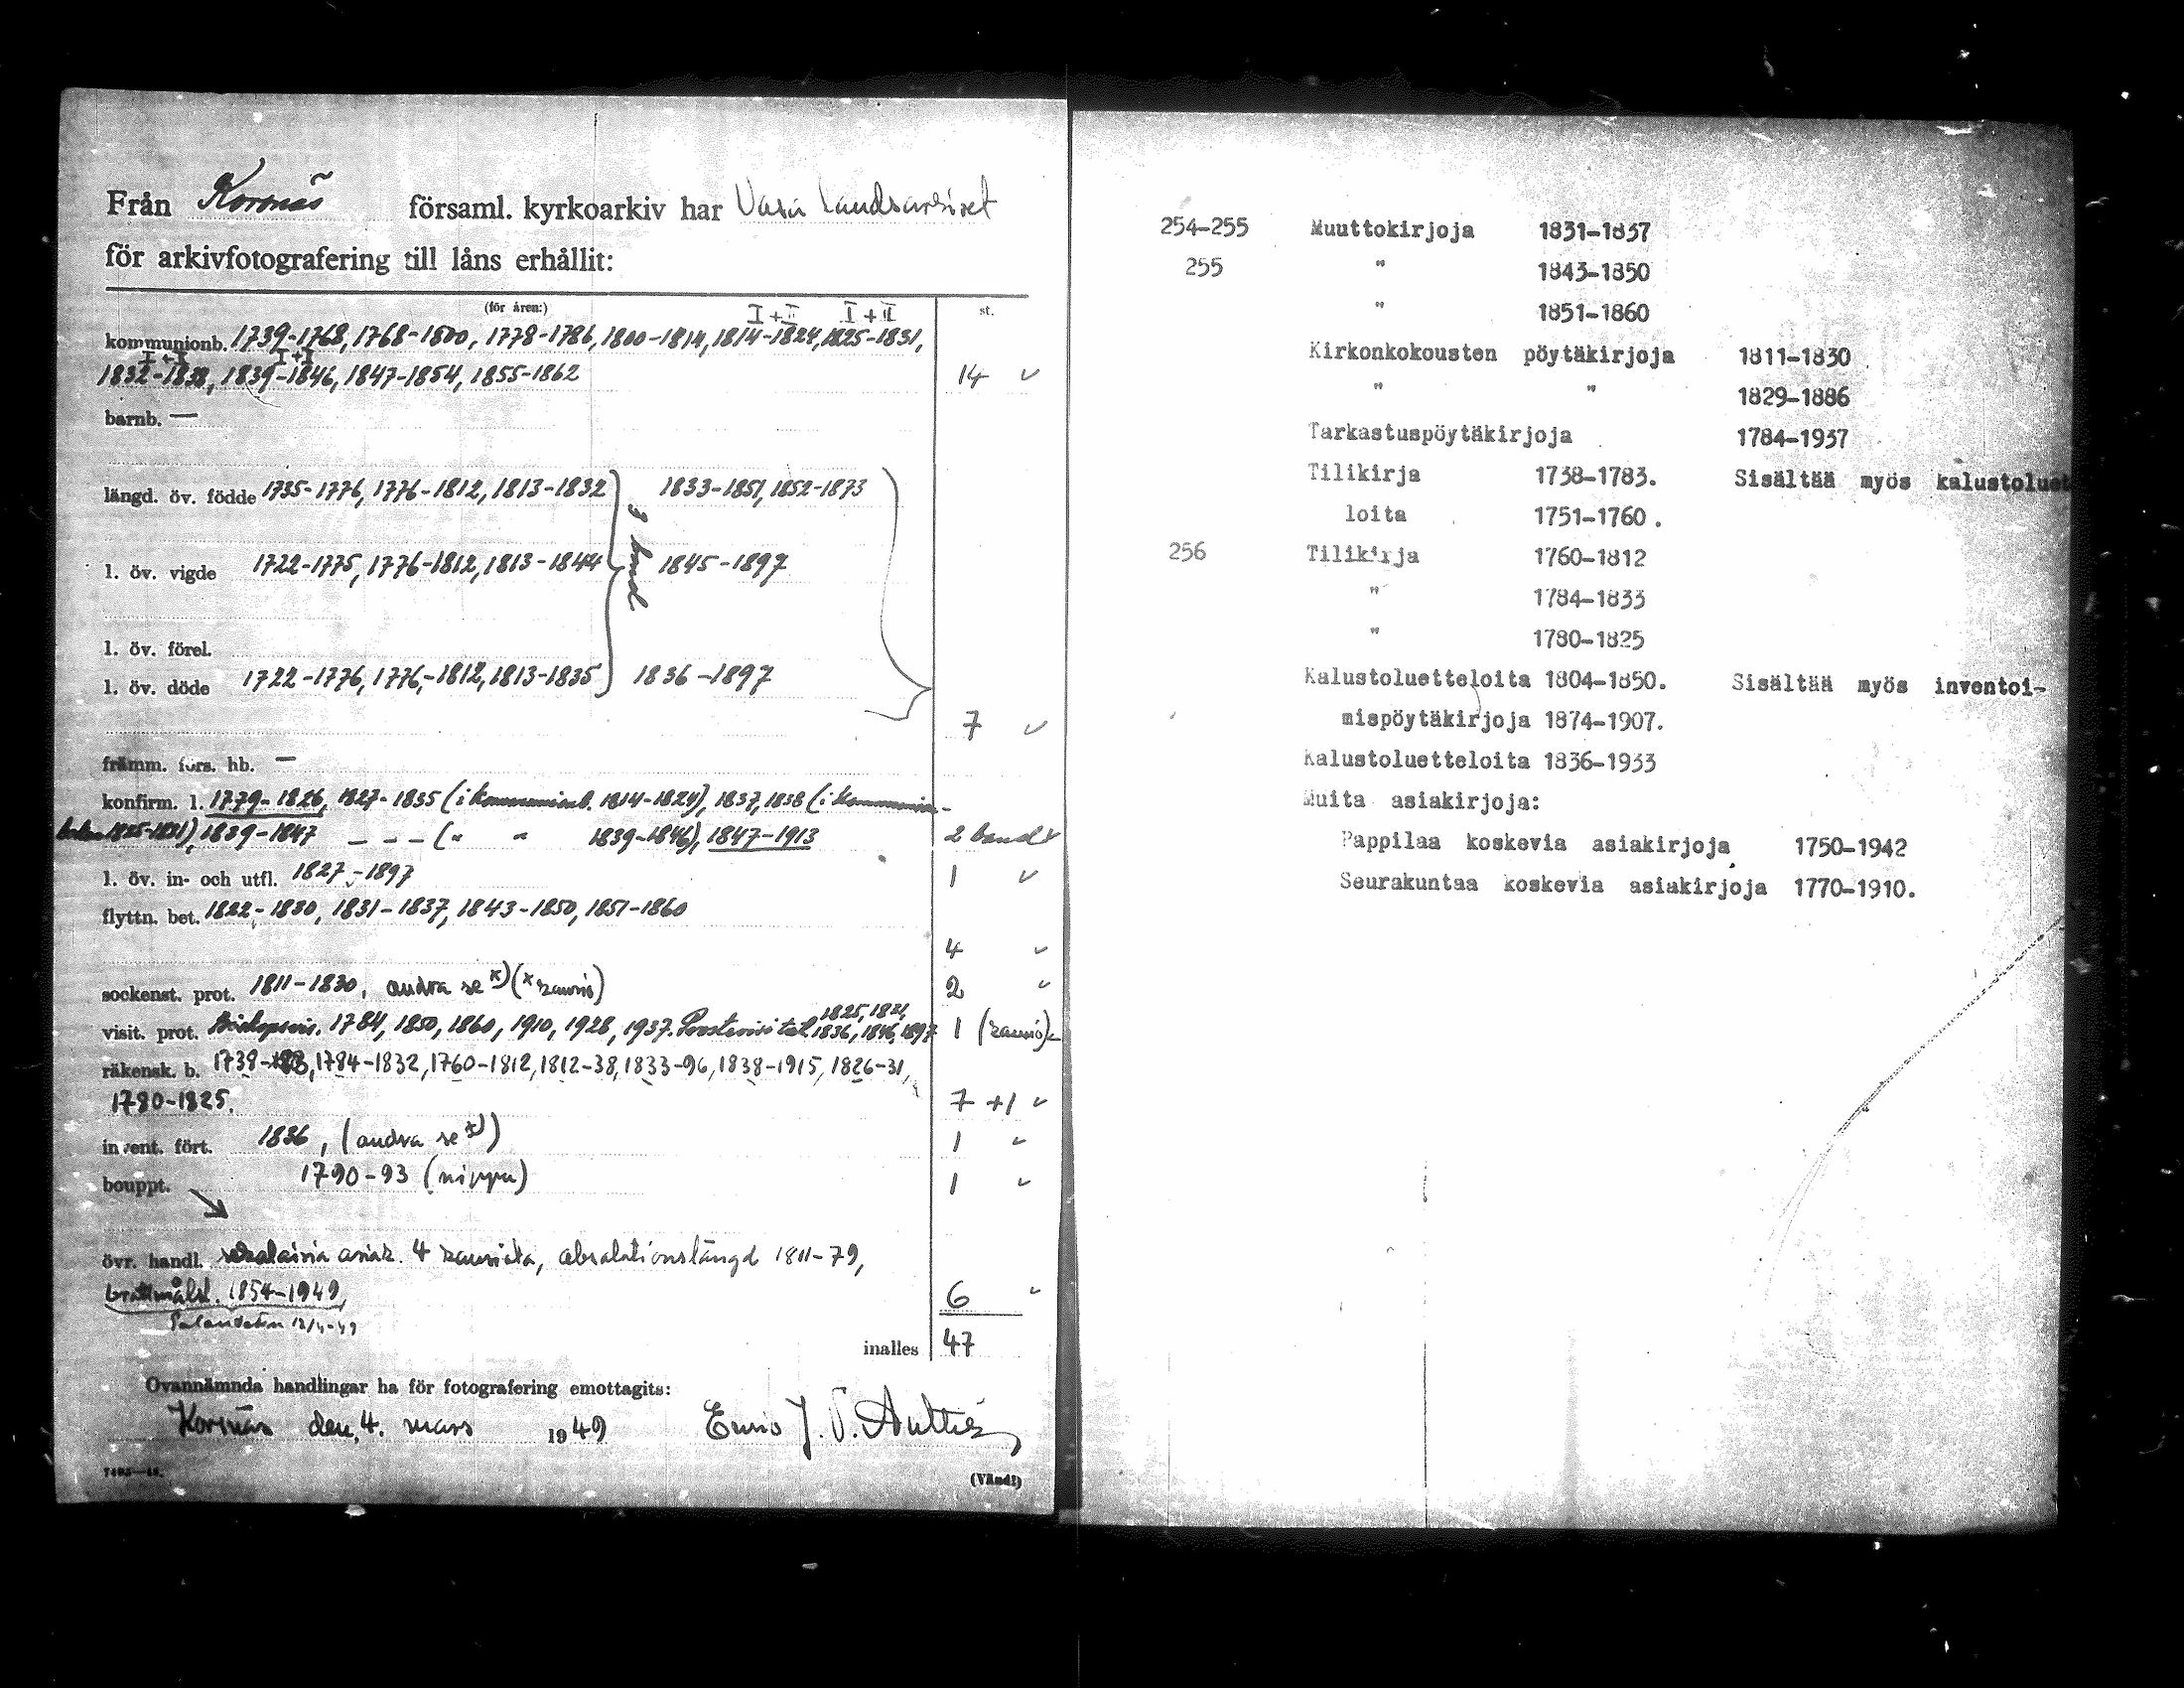 Från Korsnäs församl. kyrkoarkiv har Vasa Landsarkivet
för arkivfotografering till låns erhållit:
(för åren:) I+II I+II st.
kommunionb. 1739-1768, 1768-1800, 1778-1786, 1800-1814, 1814-1824, 1825-1831,
I+I I+I
1832-1838, 1839-1846, 1847-1854, 1855-1862 14 ✓
barnb. —
längd. öv. födde 1735-1776, 1776-1812, 1813-1832 1833-1851, 1852-1873
3 band
l. öv. vigde 1722-1775, 1776-1812, 1813-1844 1845-1897
l. öv. förel.
l. öv. döde 1722-1776, 1776-1812, 1813-1835 1836-1897
7 ✓
främm. förs. hb. —
konfirm. l. 1779-1826, 1827-1835 (i kommunionb. 1814-1824), 1837, 1838 (i kommunion-
boken 1825-1831), 1839-1847 — — — (" " 1839-1846), 1847-1913 2 band ✓
l. öv. in- och utfl. 1827-1897 1 ✓
flyttn. bet. 1822-1830, 1831-1837, 1843-1850, 1851-1860
4 ✓
sockenst. prot. 1811-1830, andra se x) (x kansio) 2 ✓
1825, 1831,
visit. prot. Biskopsvis. 1784, 1850, 1860, 1910, 1928, 1937. Prostvisitat 1836, 1846, 1897 1 (kansio) ✓
räkensk. b. 1738-83, 1784-1832, 1760-1812, 1812-38, 1833-96, 1838-1915, 1826-31,
1780-1825. 7 +1 ✓
invent. fört. 1836, (andra se x)) 1 ✓
bouppt. 1790-93 (nippu) 1 ✓
övr. handl. sekalaisia asiak. 4 kansiota, absolutionslängd 1811-79,
brottmålsl. 1854-1949, 6 ✓
Palautettu 12/4-49
inalles 47
Ovannämnda handlingar ha för fotografering emottagits:
Korsnäs den 4. mars 1949 Eino J. V.
7493—48.
(Vänd!)
254-255 Muuttokirjoja 1831-1837
255 " 1843-1850
" 1851-1860
Kirkonkokousten pöytäkirjoja 1811-1830
" " 1829-1886
Tarkastuspöytäkirjoja 1784-1937
Tilikirja 1738-1783. Sisältää myös kalustoluet
loita 1751-1760.
256 Tilikirja 1760-1812
" 1784-1833
" 1780-1825
Kalustoluetteloita 1804-1850. Sisältää myös inventoi-
mispöytäkirjoja 1874-1907.
Kalustoluetteloita 1836-1933
Muita asiakirjoja:
Pappilaa koskevia asiakirjoja 1750-1942
Seurakuntaa koskevia asiakirjoja 1770-1910.